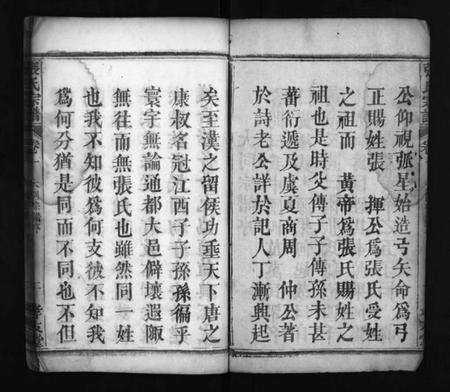 公仰視弧星始造弓矢命爲弓
正賜姓張 揮公爲張氏受姓
之祖而 黃帝爲張氏賜姓之
祖也是時父傳子子傳孫未甚
蕃衍遞及虞夏商周 仲公著
於詩老公詳於記人丁漸興起
矣至漢之留侯功垂天下唐之
康叔名冠江西子子孫孫徧乎
寰宇無論通都大邑僻壤遐陬
無往而無張氏也雖然同一姓
也我不知彼爲何支彼不知我
爲何分猶是同而不同也不但
張氏宗譜